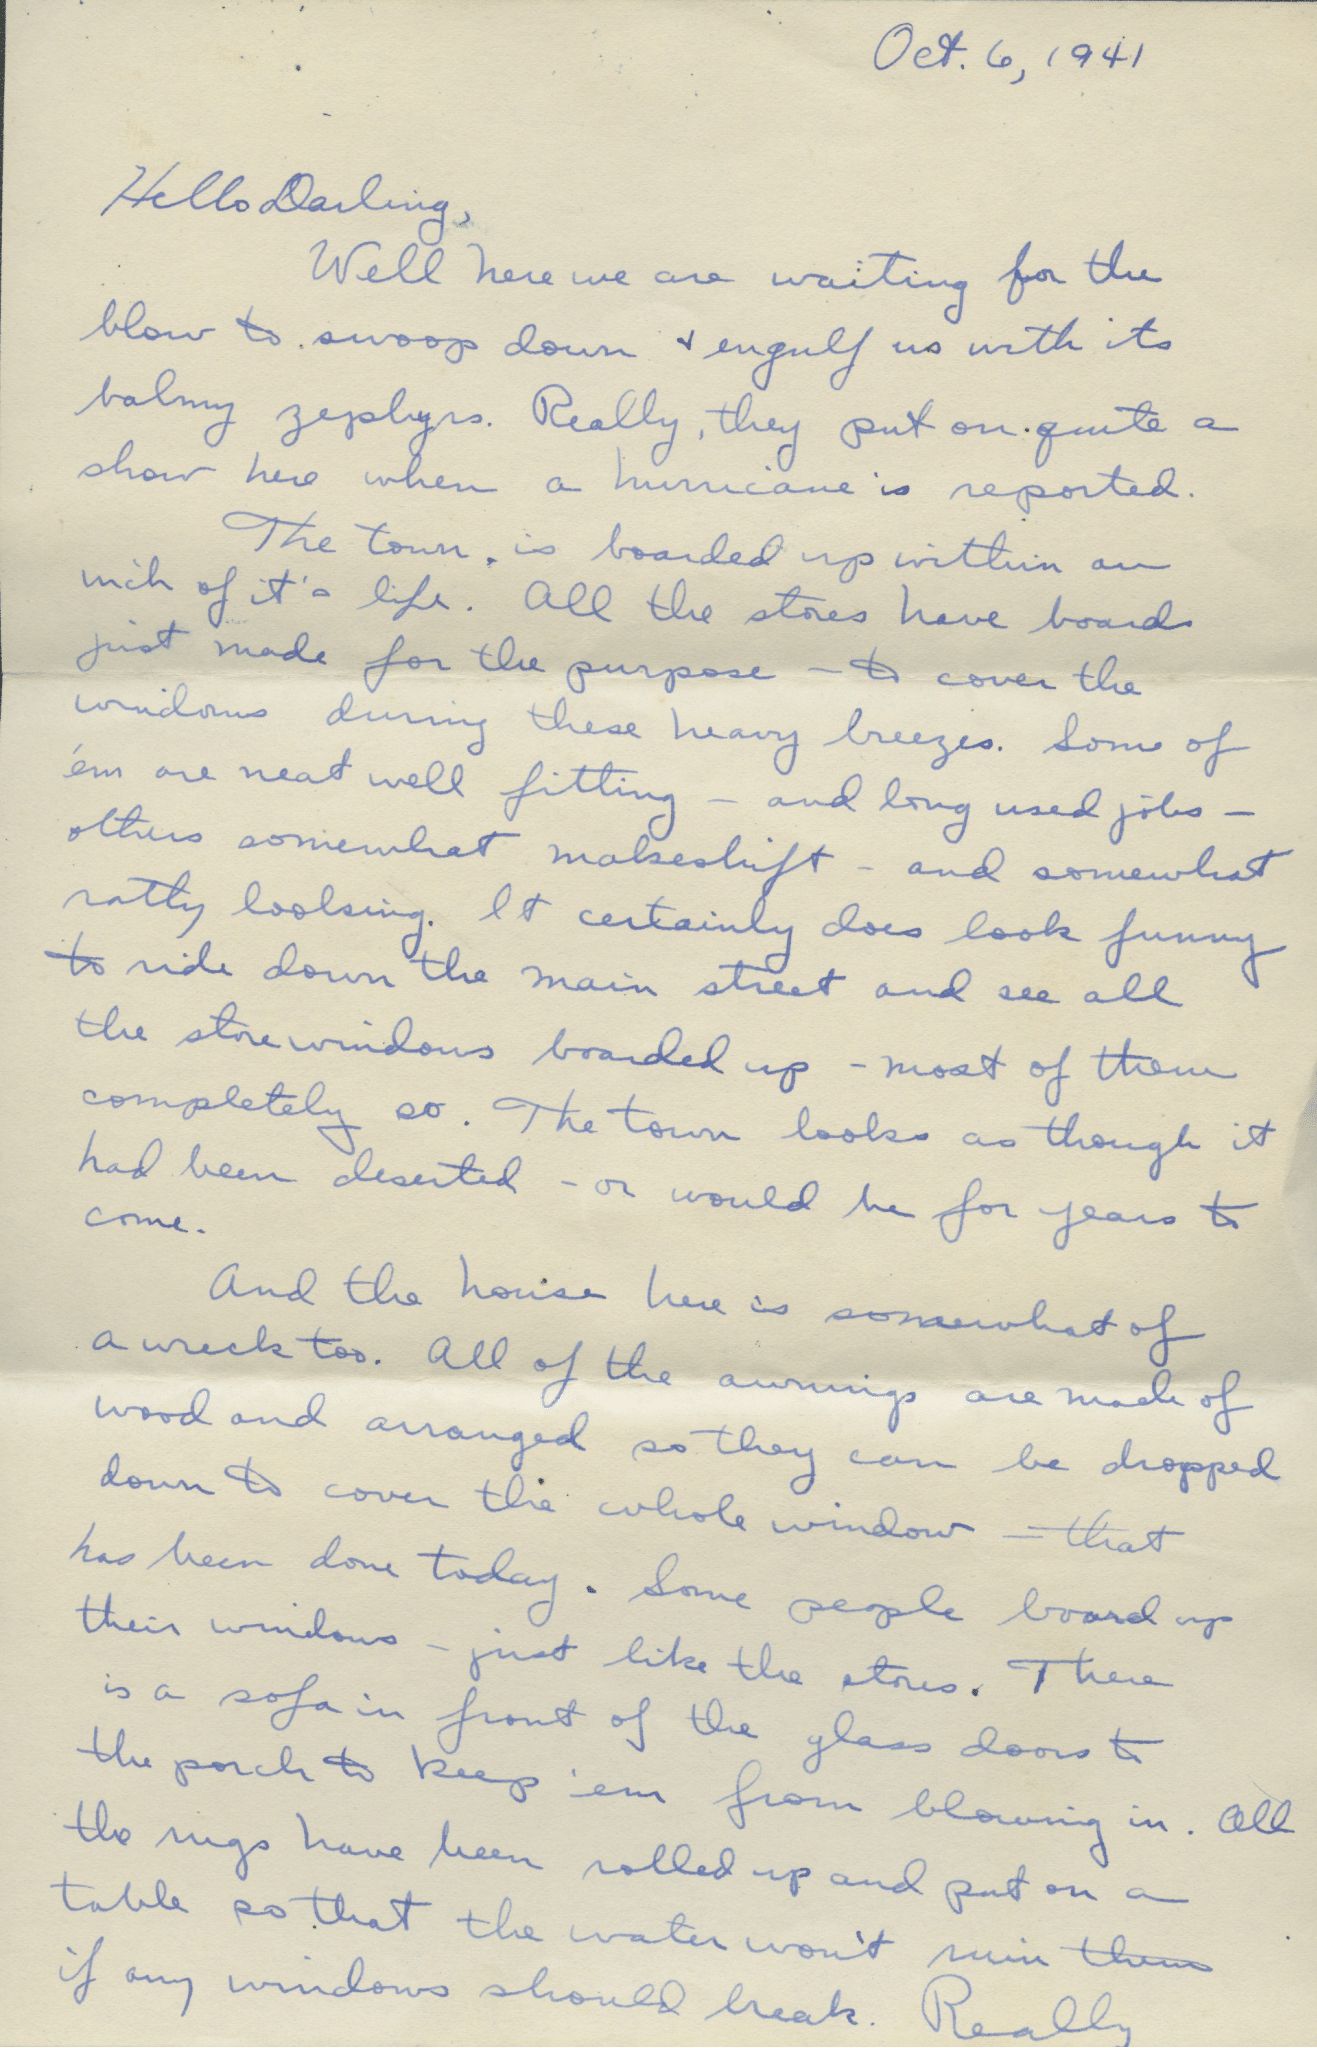 Oct. 6, 1941
Hello Darling,
Well here we are waiting for the
blow to swoop down & engulf us with its
balmy zephyrs. Really, they put on quite a
show here when a hurricane is reported.
The town is boarded up within an
inch of it's life. All the stores have boards
just made for the purpose – to cover the
windows during these heavy breezes. Some of
'em are neat well fitting – and long used jobs –
others somewhat makeshift – and somewhat
ratty looking. It certainly does look funny
to ride down the main street and see all
the store windows boarded up – most of them
completely so. The town looks as though it
had been deserted – or would be for years to
come.
And the house here is somewhat of
a wreck too. All of the awnings are made of
wood and arranged so they can be dropped
down to cover the whole window – that
has been done today. Some people board up
their windows – just like the stores. There
is a sofa in front of the glass doors to
the porch to keep 'em from blowing in. All
the rugs have been rolled up and put on a
table so that the water won't ruin them
if any windows should break. Really